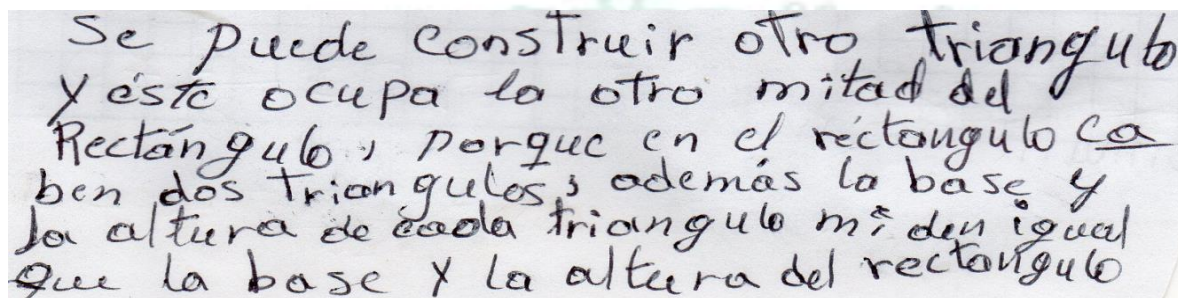 Se puede construir otro triangulo
y éste ocupa la otro mitad del
Rectángulo, porque en el réctangulo ca
ben dos triangulos, además la base y
la altura de cada triangulo miden igual
que la base y la altura del rectangulo